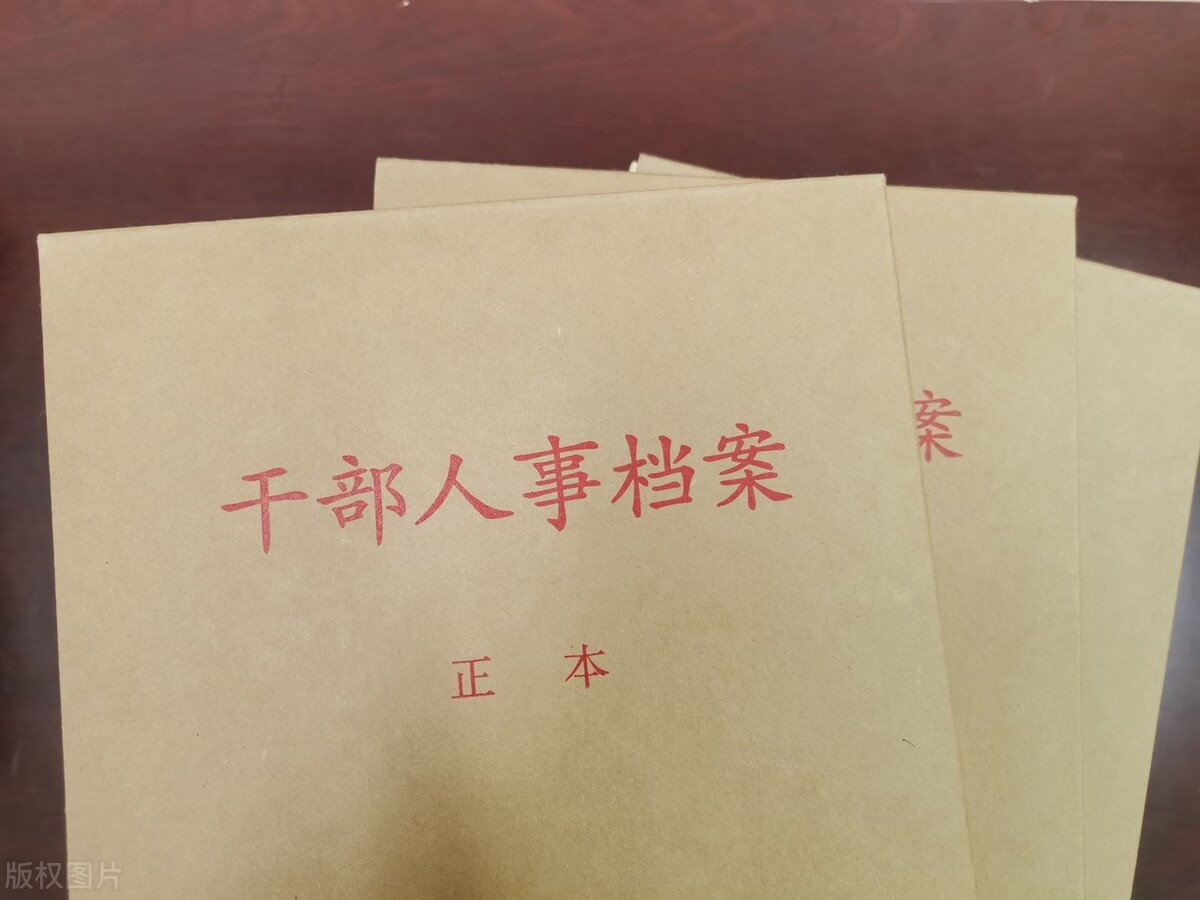 干部人事档案
正本
案
版权图片